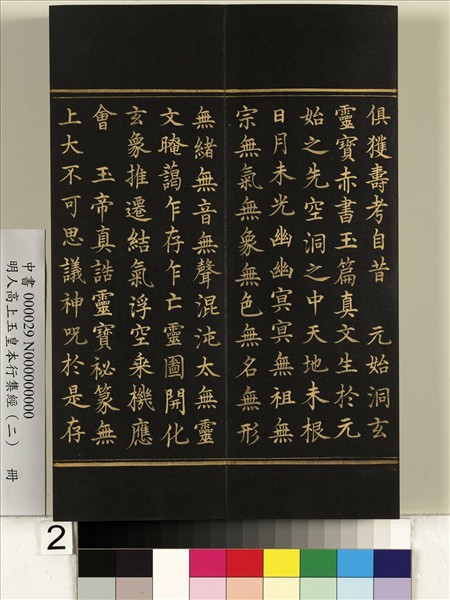 俱獲壽考自昔　元始洞玄
靈寶赤書玉篇真文生於元
始之先空洞之中天地未根
日月未光幽幽冥冥無祖無
宗無氣無象無色無名無形
無緒無音無聲混沌太無靈
文晻藹乍存乍亡靈圖開化
玄象推遷結氣浮空乘機應
會　玉帝真誥靈寶秘篆無
上大不可思議神呪於是存
中書 000029 N000000000
明人高上玉皇本行集經（二）　冊
2